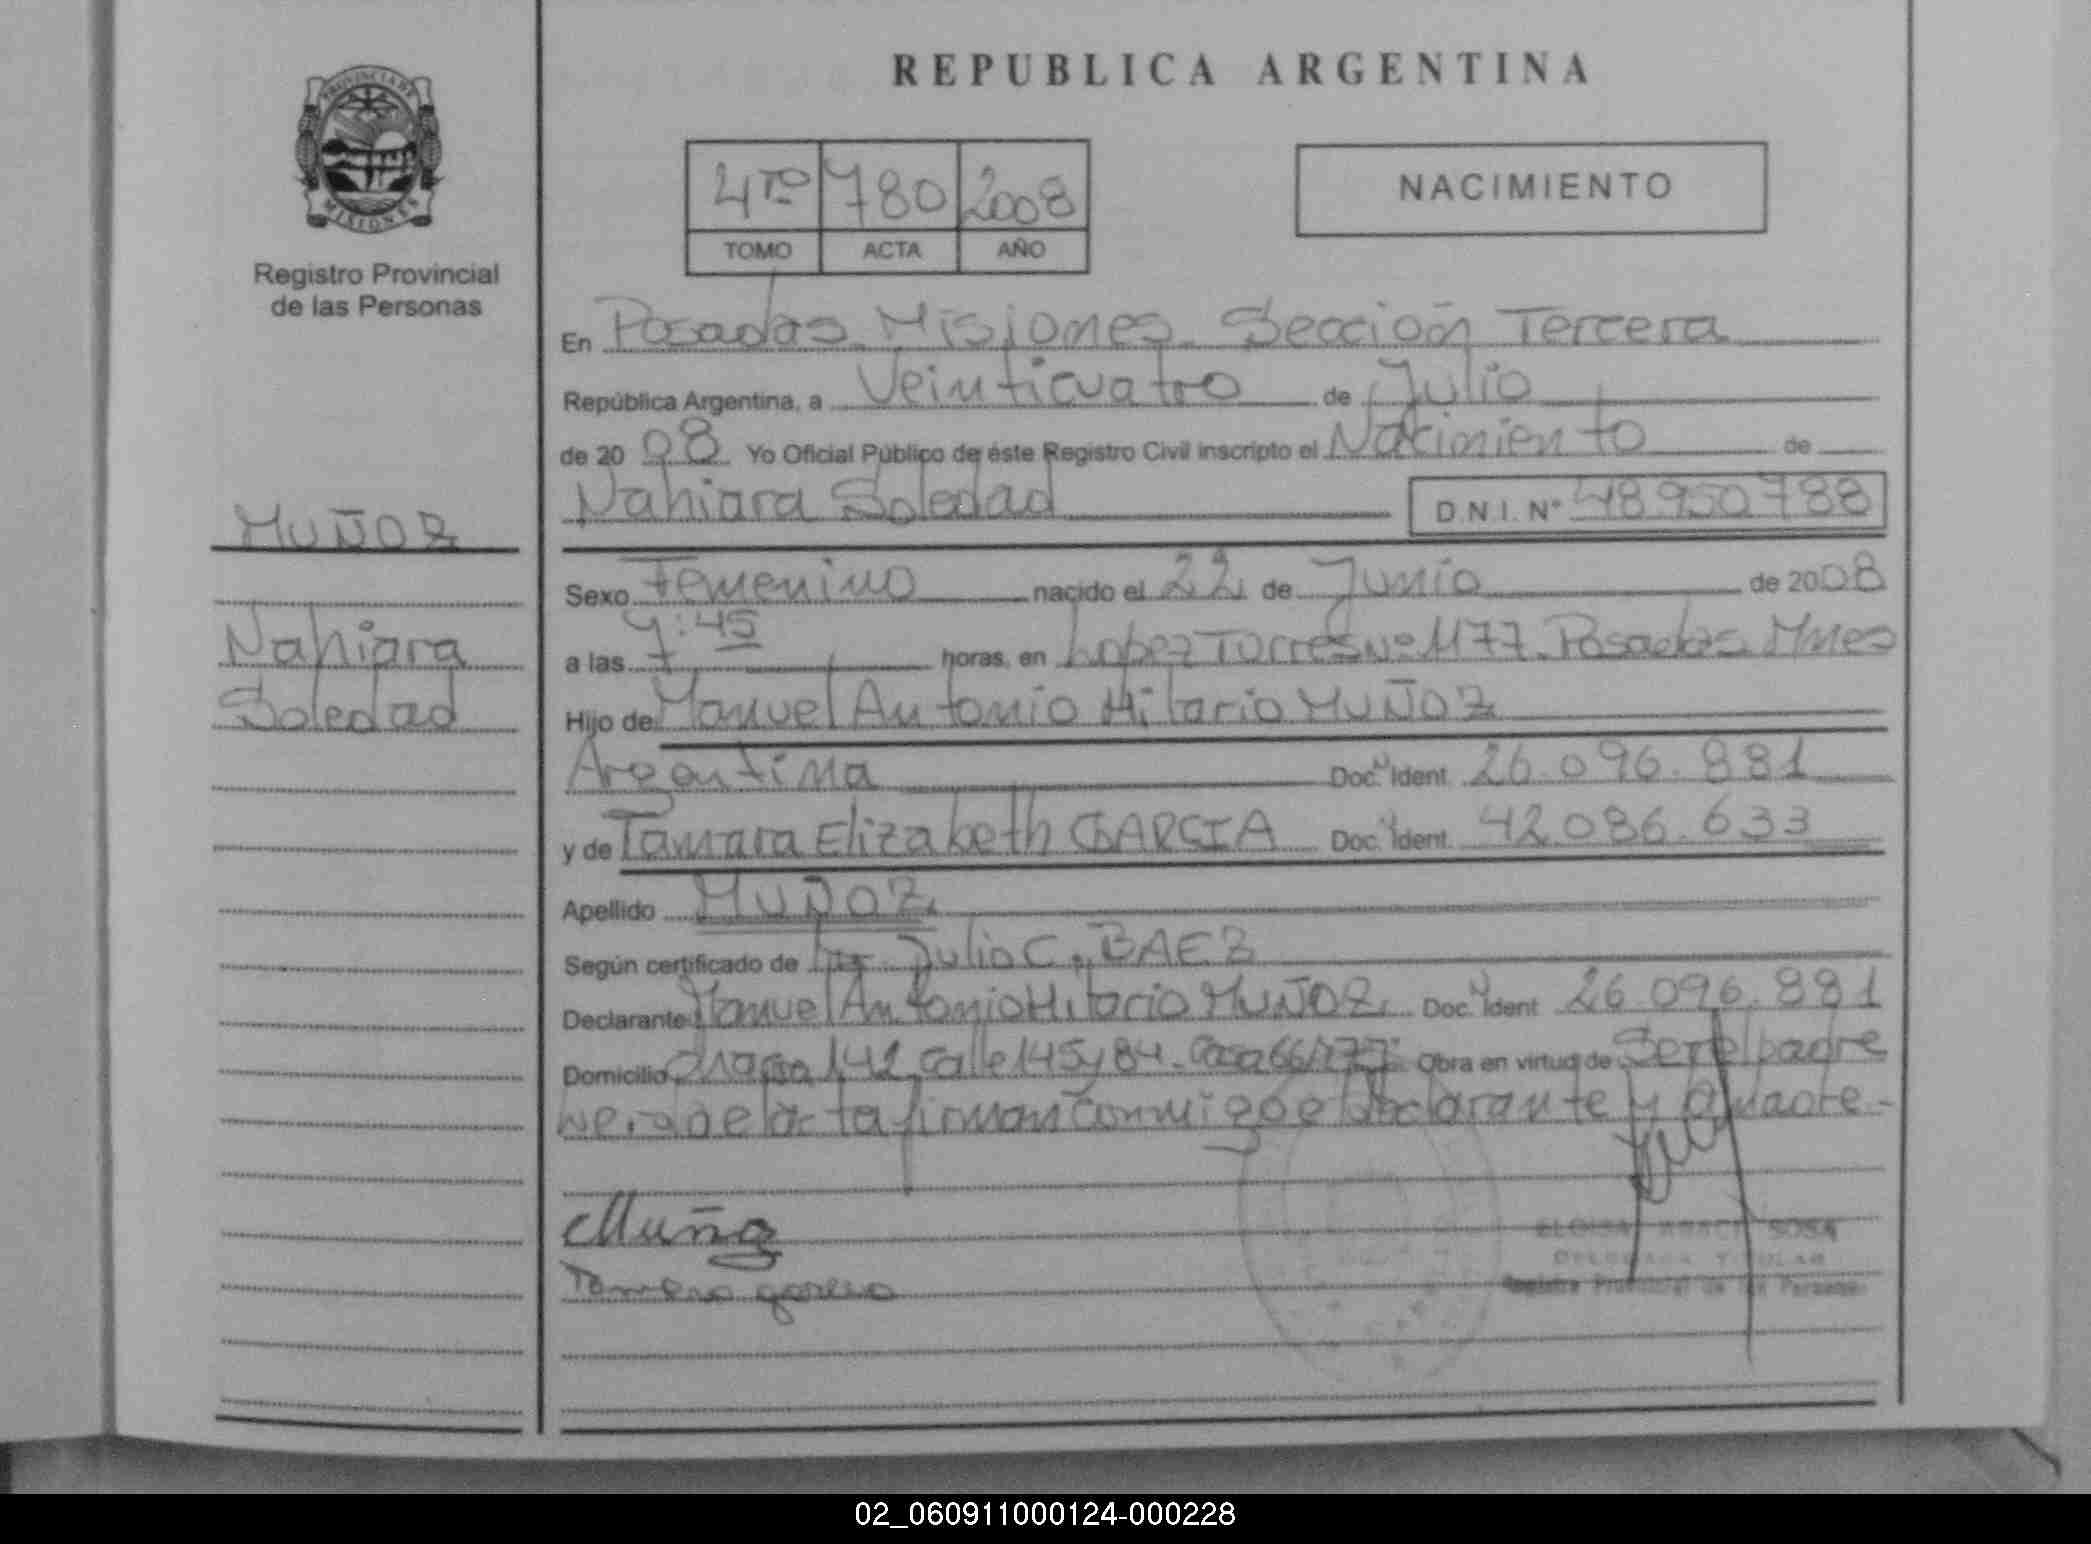 REPUBLICA ARGENTINA
PROVINCIA DE
MISIONES
Registro Provincial
de las Personas
4TO 780 2008
TOMO ACTA AÑO
NACIMIENTO
En Posadas. Misiones. Sección Tercera
República Argentina, a Veinticuatro de Julio
de 2008 Yo Oficial Público de éste Registro Civil inscripto el Nacimiento de
Nahiara Soledad D.N.I. Nº 48950788
MUÑOZ
Nahiara
Soledad
Sexo Femenino nacido el 22 de Junio de 2008
a las 7:45 horas, en Lopez Torres Nº 1177. Posadas. Mnes
Hijo de Manuel Antonio Hilario MUÑOZ
Argentina Doc. Ident. 26.096.881
y de Tamara Elizabeth GARCIA Doc. Ident. 42.086.633
Apellido MUÑOZ
Según certificado de Julio C. BAEZ
Declarante Manuel Antonio Hilario MUÑOZ Doc. Ident 26.096.881
Domicilio chacra 142 calle 145 y 84. Casa 66/177 Obra en virtud de Ser el padre
el acta firman conmigo el declarante y madre.-
Muñoz
Tamara garcia
SOSA
Registro Provincial de las Personas
02_060911000124-000228